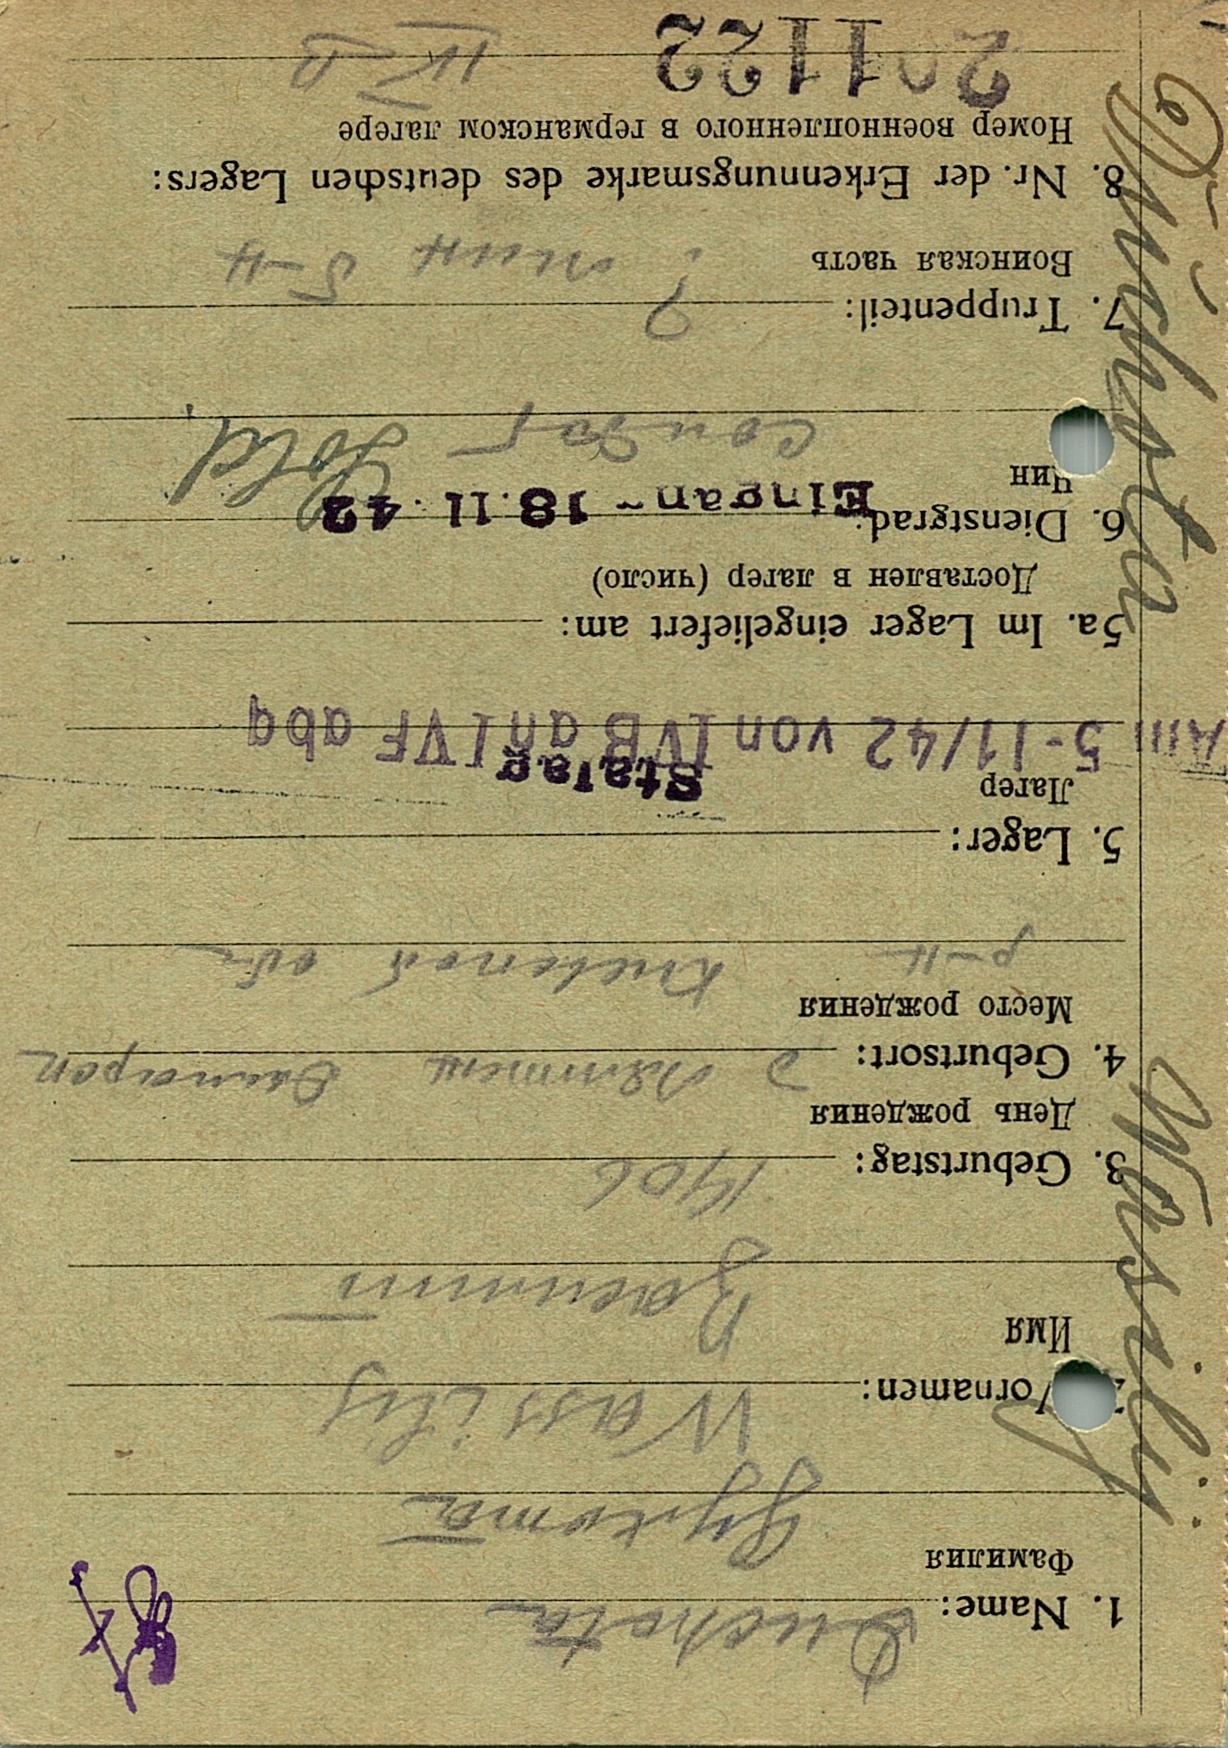 Duchota
1. Name:
Фамилия
Духота
Wassilij
Vornamen:
Имя
Василий
1906
3. Geburtstag:
День рождения
4. Geburtsort:
Место рождения
р-н Киевской обл
5. Lager:
Лагер
Stalag
Am 5-11/42 von IVB an IVF abg
5a. Im Lager eingeliefert am:
Доставлен в лагер (число)
6. Dienstgrad:
Eingang 18. 11. 42
Чин
солдат Sold.
7. Truppenteil:
Воинская часть
8. Nr. der Erkennungsmarke des deutschen Lagers:
Номер военнопленного в германском лагере
201122 IV-B
Duchota Wassilij